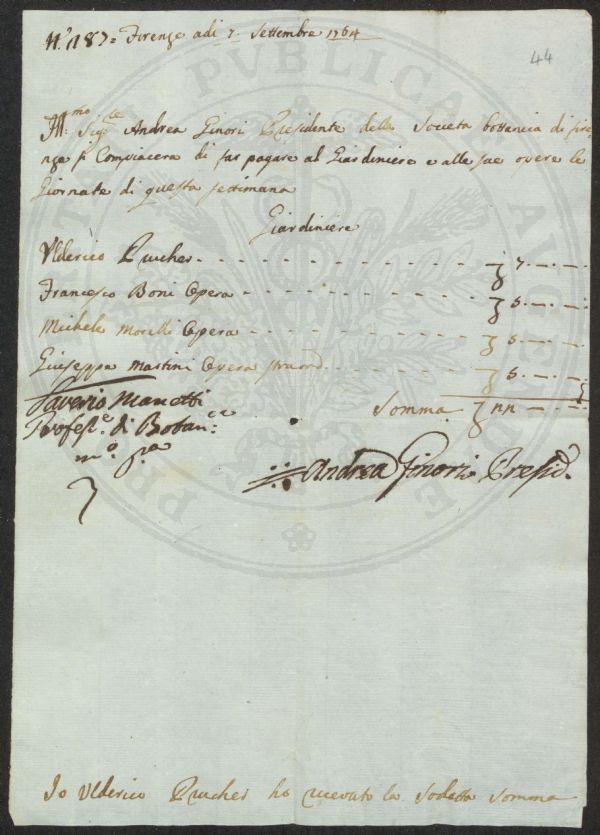 N.º 187= Firenze adi 7 Settembre 1764
44
Ill:mo Sig:re Andrea Ginori Presidente della Societa bottanica di fire=
nze si Compiacera di far pagare al Giardiniere e alle sue opere le
Giornate di questa settimana
Giardiniere
Ulderico Prucher - - - - - - - - - - - 7 - -
Francesco Boni Opera - - - - - - - - - 5 - -
Michele Morelli Opera - - - - - - - - - 5 - -
Giuseppa Martini Opera straord - - - - - 5 - -
Somma 22 - -
Saverio Manetti
Profes:e di Botan:ca
m.o p.a
Andrea Ginori Presid.
Io Ulderico Prucher ho ricevuto la sodetta somma
PRAESTANTI PUBLICAE AUGENDAE